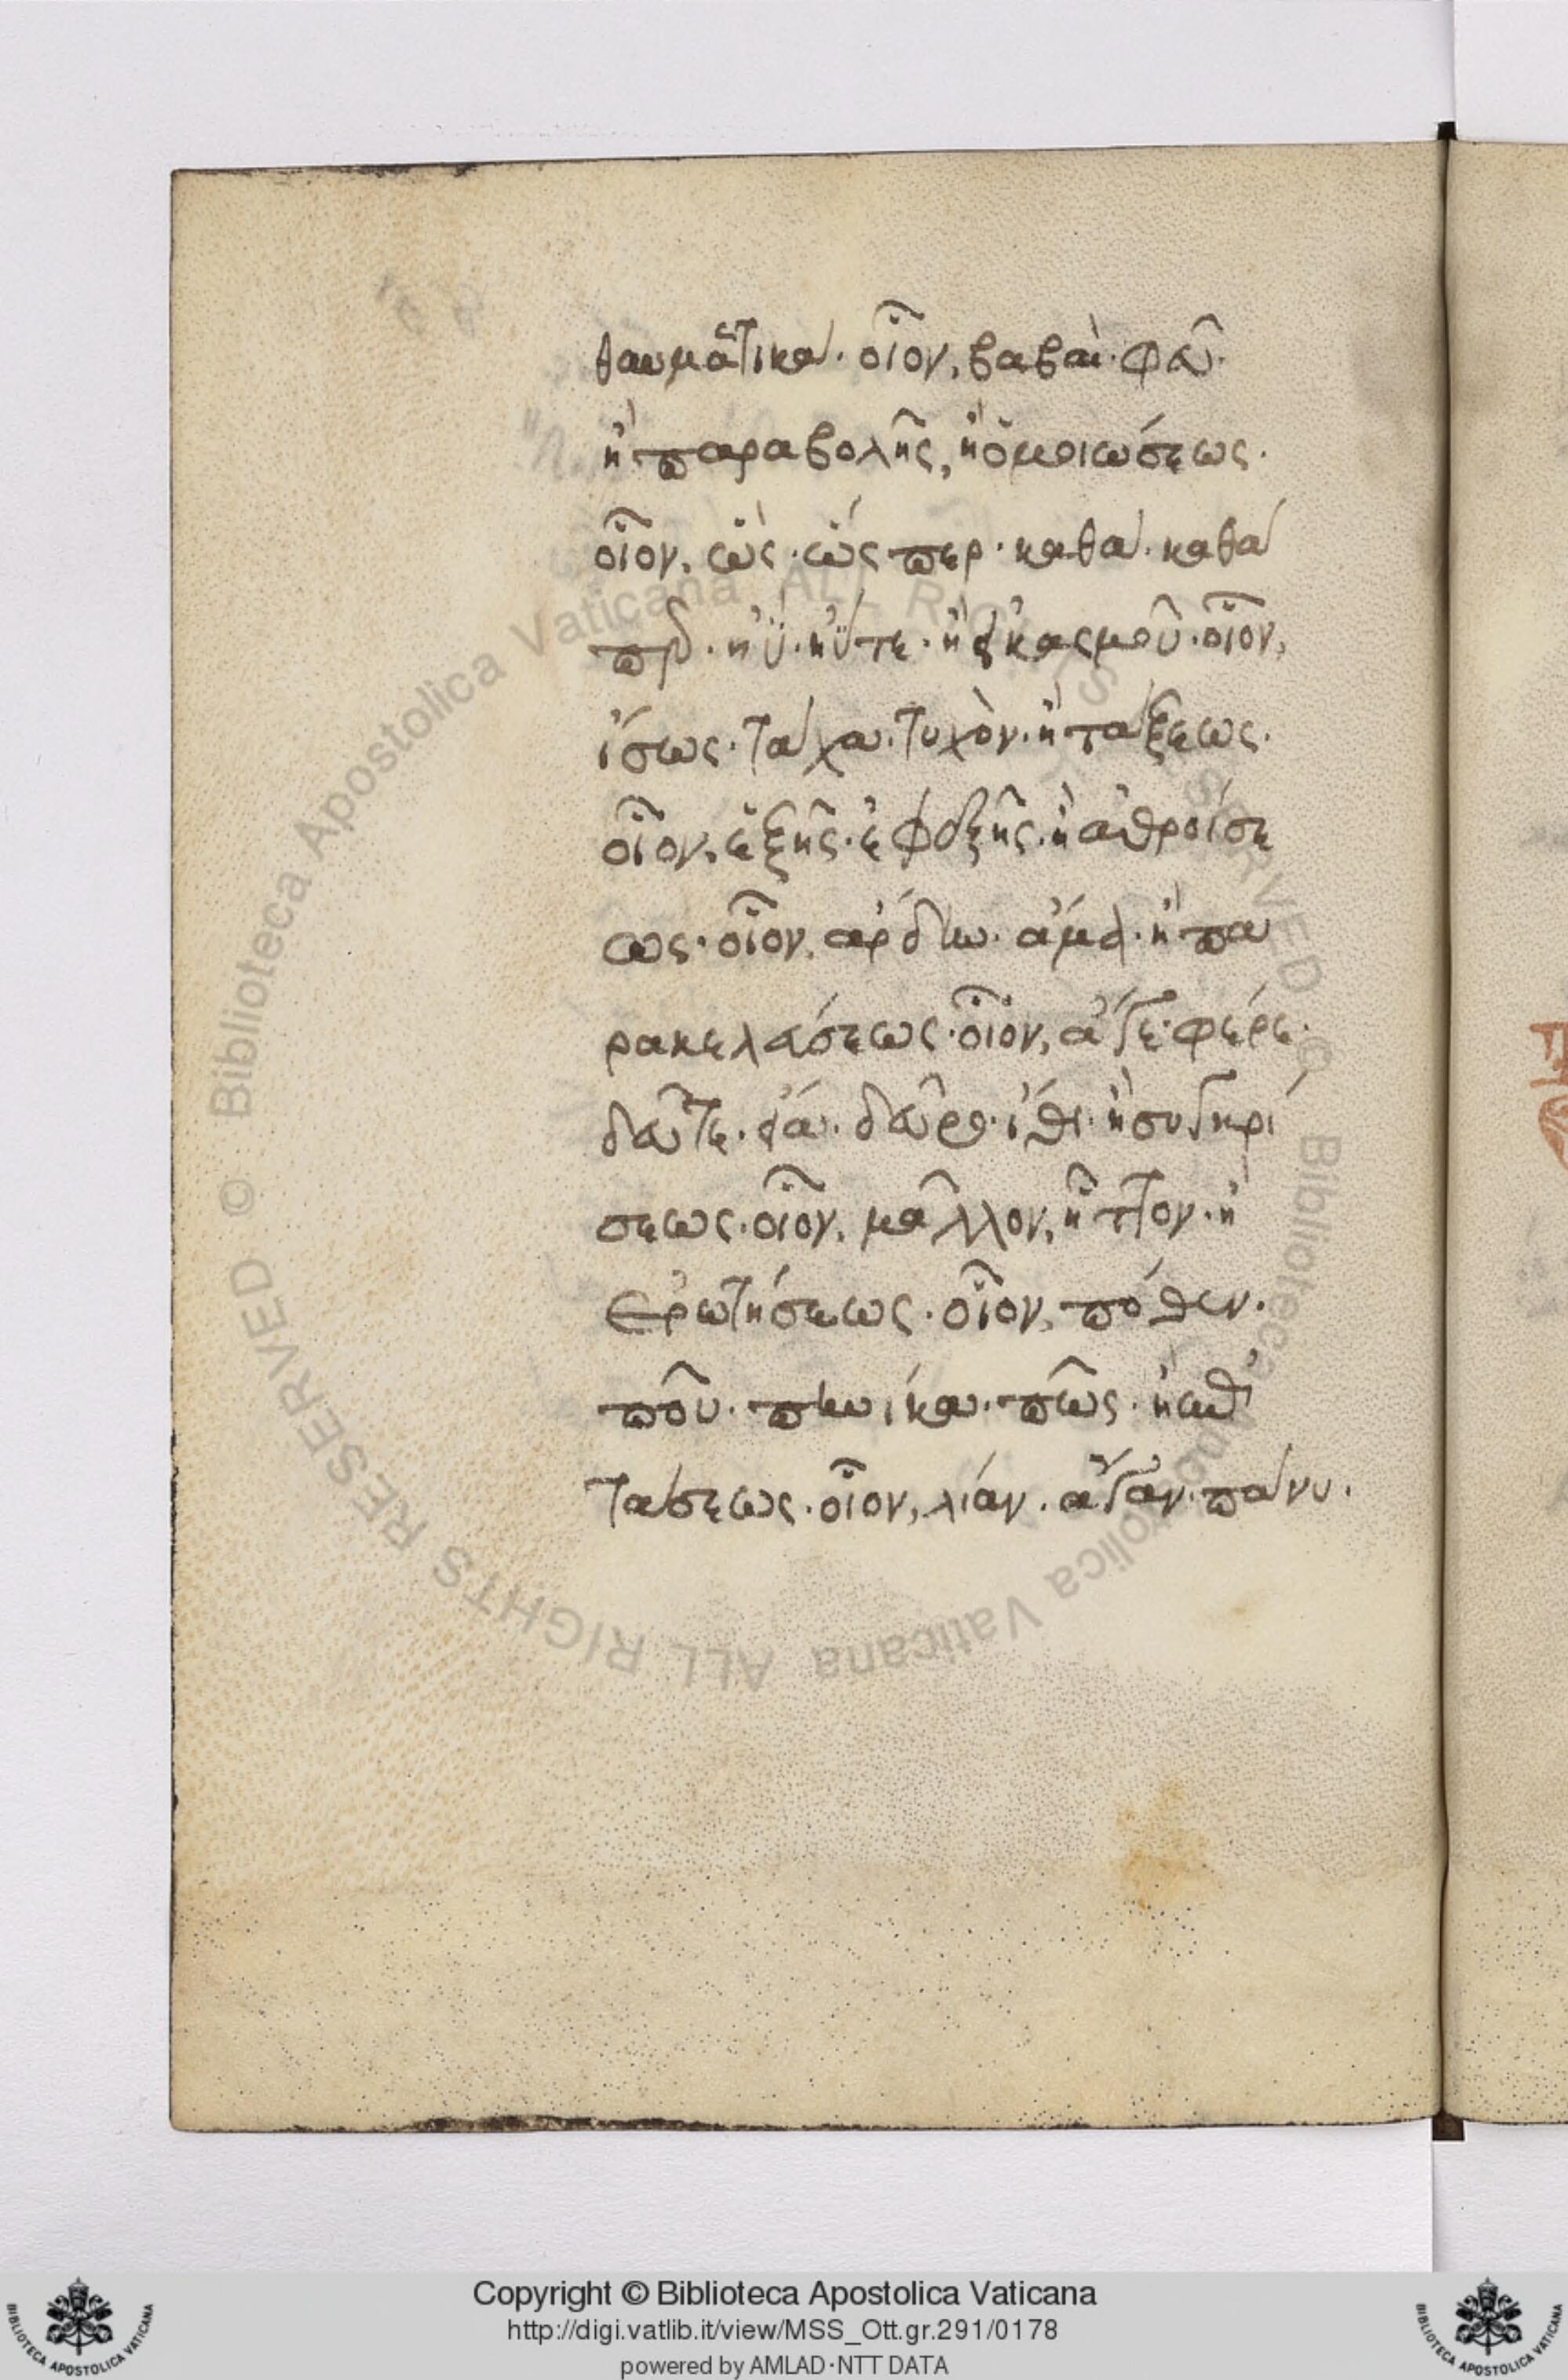 θαυμαστικά· οἷον, βαβαί· φεῦ·
ἢ παραβολῆς, ἢ ὁμοιώσεως·
οἷον, ὡς· ὥσπερ· καθά· καθά
περ· ἠΰ· ἠΰτε· ἢ εἰκασμοῦ· οἷον,
ἴσως· τάχα· τυχὸν· ἢ τάξεως·
οἷον, ἑξῆς· ἐφεξῆς· ἢ ἀθροίσε
ως· οἷον, ἄρδην· ἅμα· ἢ πα
ρακελεύσεως· οἷον, ἄγε· φέρε·
δεῦτε· εἶα· δεῦρο· ἴθι· ἢ συγκρί
σεως· οἷον, μᾶλλον, ἧττον· ἢ
ἐρωτήσεως· οἷον, πόθεν·
ποῦ· πηνίκα· πῶς· ἢ ἐπι
τάσεως· οἷον, λίαν· ἄγαν· πάνυ·
© Biblioteca Apostolica Vaticana ALL RIGHTS RESERVED © Biblioteca Apostolica Vaticana ALL RIGHTS RESERVED
Copyright © Biblioteca Apostolica Vaticana
http://digi.vatlib.it/view/MSS_Ott.gr.291/0178
powered by AMLAD·NTT DATA
BIBLIOTECA APOSTOLICA VATICANA
BIBLIOTECA APOSTOLICA VATICANA